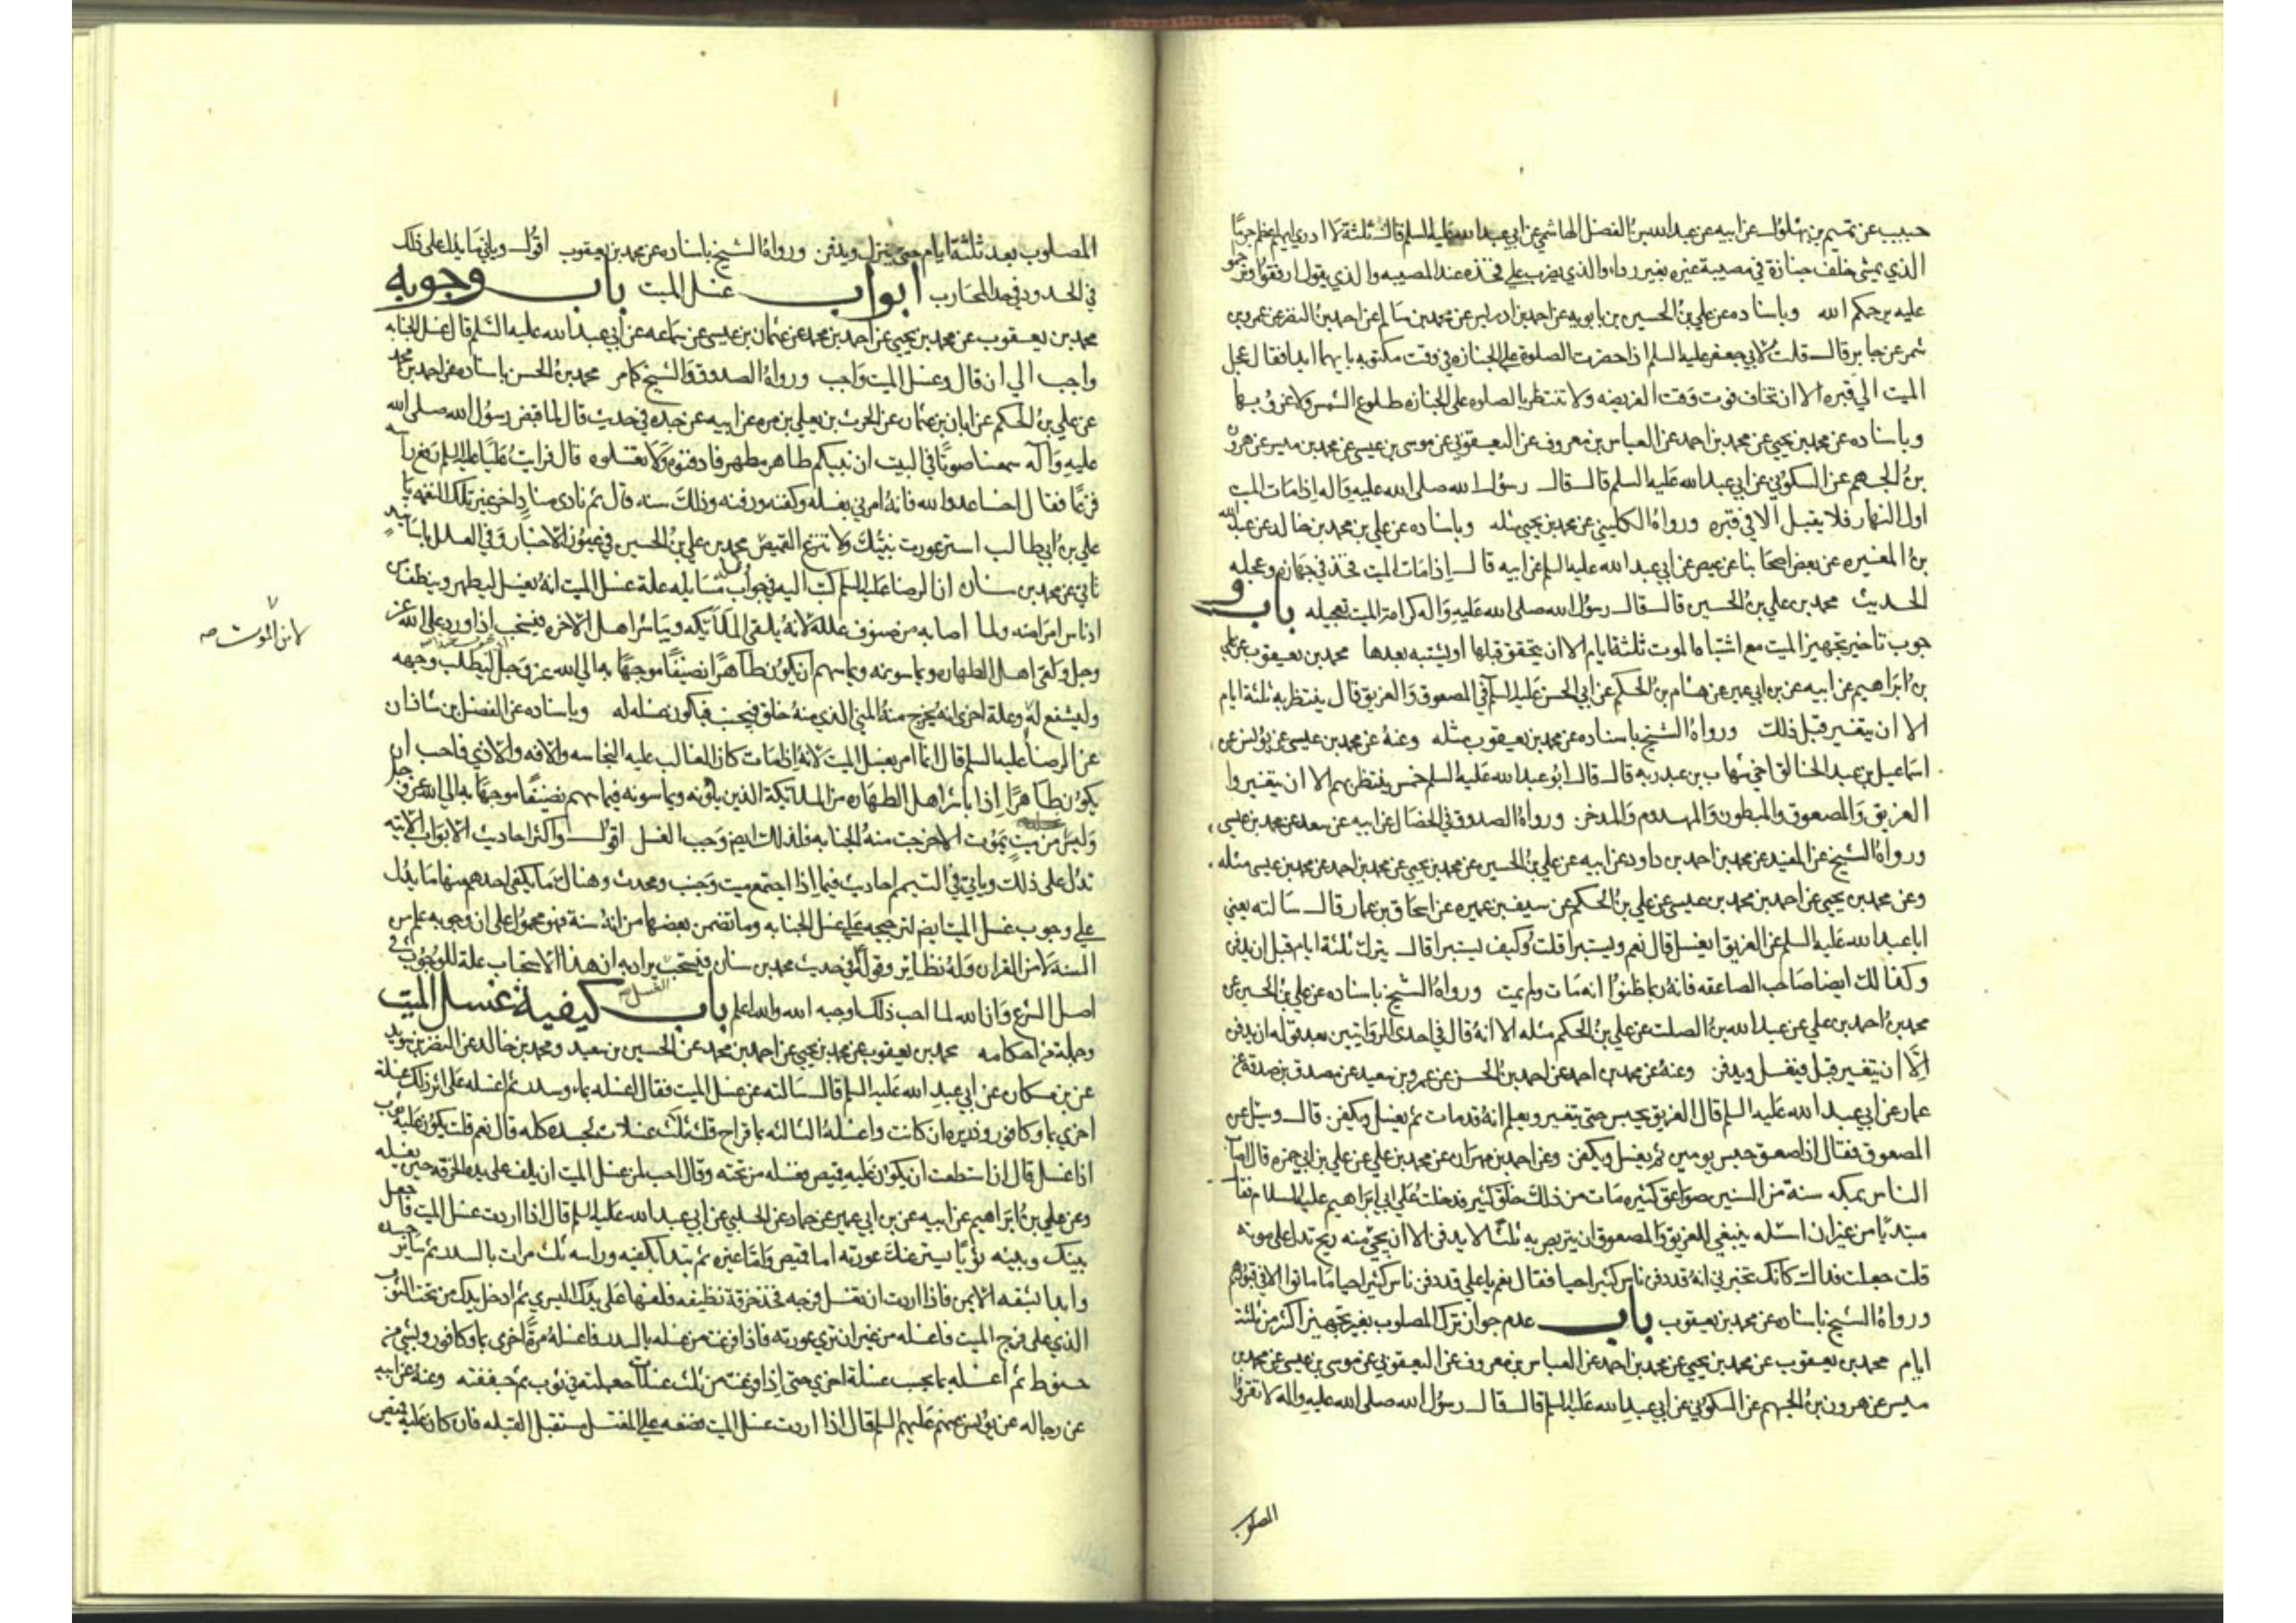 حبيب عن تميم بن بهلول عن ابيه عن عبد الله بن الفضل الهاشمي عن ابي عبد الله عليه السلم قال ثلثة لا ادري ايهم اعظم جرمًا
الذي يمشي خلف جنازة في مصيبة غيره بغير رداء والذي يضرب على فخذه عند المصيبه والذي يقول ارفقوا وترحموا
عليه يرحمكم الله وباسناده عن علي بن الحسين بن بابويه عن احمد بن ادريس عن محمد بن سالم عن احمد بن النضر عن عمرو بن
شمر عن جابر قال قلت لابي جعفر عليه السلم اذا حضرت الصلوة على الجنازه في وقت مكتوبه بايهما ابدا فقال عجل
الميت الي قبره الا ان تخاف فوت وقت الفريضه ولا تنتظر بالصلوه على الجنازه طلوع الشمس ولا غروبها
وباسناده عن محمد بن يحيى عن محمد بن احمد عن العباس بن معروف عن اليعقوبي عن موسى بن عيسى عن محمد بن ميسر عن هرون
بن الجهم عن السكوني عن ابي عبد الله عليه السلم قال قال رسول الله صلى الله عليه واله اذا مات الميت
اول النهار فلا يقيل الا في قبره ورواه الكليني عن محمد بن يحيى مثله وباسناده عن علي بن محمد بن خالد عن عبد الله
بن المغيره عن بعض اصحابنا عن عيص عن ابي عبد الله عليه السلم عن ابيه قال اذا مات الميت فخذ في جهازه وعجله
الحديث محمد بن علي بن الحسين قال قال رسول الله صلى الله عليه واله كرامة الميت تعجيله باب و
جوب تاخير تجهيز الميت مع اشتباه الموت ثلثة ايام الا ان يتحقق قبلها او يشتبه بعدها محمد بن يعقوب عن علي
بن ابراهيم عن ابيه عن بن ابي عمير عن هشام بن الحكم عن ابي الحسن عليه السلم في المصعوق والغريق قال ينتظر به ثلثة ايام
الا ان يتغير قبل ذلك ورواه الشيخ باسناده عن محمد بن يعقوب مثله وعنه عن محمد بن عيسى عن يونس عن
اسماعيل بن عبد الخالق اخي شهاب بن عبد ربه قال قال ابو عبد الله عليه السلم خمس ينتظر بهم الا ان يتغيروا
الغريق والمصعوق والمبطون والمهدوم والمدخن ورواه الصدوق في الخصال عن ابيه عن سعد عن محمد بن عيسى
ورواه الشيخ عن المفيد عن محمد بن احمد بن داود عن ابيه عن علي بن الحسين عن محمد بن يحيى عن محمد بن احمد عن محمد بن عيسى مثله
وعن محمد بن يحيى عن احمد بن محمد بن عيسى عن علي بن الحكم عن سيف بن عميره عن اسحاق بن عمار قال سالته يعني
ابا عبد الله عليه السلم عن الغريق ايغسل قال نعم ويستبرا قلت وكيف يستبرا قال يترك ثلثة ايام قبل ان يدفن
وكذلك ايضا صاحب الصاعقه فانه ربما ظنوا انه مات ولم يمت ورواه الشيخ باسناده عن علي بن الحسين عن
محمد بن احمد بن علي عن عبد الله بن الصلت عن علي بن الحكم مثله الا انه قال في احدى الروايتين بعد قوله ان يدفن
الّا ان يتغير قبل فيغسل ويدفن وعنه عن محمد بن احمد عن احمد بن الحسن عن عمرو بن سعيد عن مصدق بن صدقة عن
عمار عن ابي عبد الله عليه السلم قال الغريق يحبس حتى يتغير ويعلم انه قد مات ثم يغسل ويكفن قال وسئل عن
المصعوق فقال اذا صعق حبس يومين ثم يغسل ويكفن وعن احمد بن مهران عن محمد بن علي عن علي بن ابي حمزه قال اصاب
الناس بمكه سنة من السنين صواعق كثيره مات من ذلك خلق كثير فدخلت على ابي ابراهيم عليه السلام فقال
مبتديًا من غير ان اسئله ينبغي للغريق والمصعوق ان يتربص به ثلثًا لا يدفن الا ان يجئ منه ريح تدل على موته
قلت جعلت فداك كانك تخبرني انه قد دفن ناس كثير احيا فقال نعم يا علي قد دفن ناس كثير احيا ما ماتوا الا في قبورهم
ورواه الشيخ باسناده عن محمد بن يعقوب باب عدم جواز ترك المصلوب بغير تجهيز اكثر من ثلثة
ايام محمد بن يعقوب عن محمد بن يحيى عن محمد بن احمد عن العباس بن معروف عن اليعقوبي عن موسى بن عيسى عن محمد بن
ميسر عن هرون بن الجهم عن السكوني عن ابي عبد الله عليه السلم قال قال رسول الله صلى الله عليه واله لا تقروا
المصلوب
المصلوب بعد ثلثة ايام حتى ينزل ويدفن ورواه الشيخ باسناده عن محمد بن يعقوب اقول وياتي ما يدل على ذلك
في الحدود في حد المحارب ابواب غسل الميت باب وجوبه
محمد بن يعقوب عن محمد بن يحيى عن احمد بن محمد عن عثمان بن عيسى عن سماعه عن ابي عبد الله عليه السلم قال غسل الجنابه
واجب الي ان قال وغسل الميت واجب ورواه الصدوق والشيخ كما مر محمد بن الحسن باسناده عن احمد بن محمد
عن علي بن الحكم عن ابان بن عثمان عن الحرث بن يعلى بن مره عن ابيه عن جده في حديث قال لما قبض رسول الله صلى الله
عليه وآله سمعنا صوتًا في البيت ان نبيكم طاهر مطهر فادفنوه ولا تغسلوه قال فرايت عليًا عليه السلم رفع راسه
فزعًا فقال اخسا عدو الله فانه امرني بغسله وكفنه ودفنه وذلك سنه قال ثم نادى منادٍ اخر غير تلك النغمه يا
علي بن ابي طالب استر عورت نبيك ولا تنزع القميص محمد بن علي بن الحسين في عيون الاخبار وفي العلل باسانيد
تاتي عن محمد بن سنان ان الرضا عليه السلم كتب اليه في جواب مسايله علة غسل الميت انه يغسل ليطهر وينظف من
ادناس امراضه ولما اصابه من صنوف علله لانه يلقى الملائكه ويباشر اهل الاخره فيستحب اذا ورد على الله عز
وجل ولقى اهل الطهاره ويماسونه ويماسهم ان يكون طاهرًا نضيفًا موجهًا به الي الله عز وجل ليطلب وجهه
وليشفع له وعلة اخرى انه يخرج منه المني الذي منه خلق فيجنب فيكون غسله له وباسناده عن الفضل بن شاذان
عن الرضا عليه السلم قال انما امر بغسل الميت لانه اذا مات كان الغالب عليه النجاسه والافه والاذي فاحب ان
يكون طاهرًا اذا باشر اهل الطهاره من الملائكة الذين يلونه ويماسونه فيما سهم نضيفًا موجهًا به الي الله عز وجل
وليس من ميت يموت الا خرجت منه الجنابه فلذلك ايضا وجب الغسل اقول واكثر احاديث الابواب الاتيه
تدل على ذلك وياتي في التيمم احاديث فيما اذا اجتمع ميت وجنب ومحدث وهناك ما يكفي احدهم منها ما يدل
على وجوب غسل الميت ايضا لترجيحه على غسل الجنابه وما تضمن بعضها من انه سنة فهو محمول على ان وجوبه علم من
السنه لا من القران وله نظائر وقوله في حديث محمد بن سنان فيستحب يراد به ان هذا الاستحباب علة للوجوب في
اصل الشرع وان الله لما احب ذلك اوجبه الله والله اعلم باب كيفية غسل الميت
وجملة من احكامه محمد بن يعقوب عن محمد بن يحيى عن احمد بن محمد عن الحسين بن سعيد ومحمد بن خالد عن النضر بن سويد
عن بن مسكان عن ابي عبد الله عليه السلم قال سالته عن غسل الميت فقال اغسله بماء وسدر ثم اغسله على اثر ذلك غسلة
اخري بماء وكافور وذريره ان كانت واغسله الثالثه بماء قراح قلت ثلث غسلات لجسده كله قال نعم قلت يكون عليه ثوب
اذا غسل قال ان استطعت ان يكون عليه قميص يغسله من تحته وقال احب لمن غسل الميت ان يلف على يده الخرقه حين يغسله
وعن علي بن ابراهيم عن ابيه عن بن ابي عمير عن حماد عن الحلبي عن ابي عبد الله عليه السلم قال اذا اردت غسل الميت فاجعل
بينك وبينه ثوبًا يستر عنك عورته اما قميص واما غيره ثم تبدا بكفيه وراسه ثلث مرات بالسدر ثم ساير جسده
وابدا بشقه الايمن فاذا اردت ان تغسل فرجه فخذ خرقة نظيفه فلفها على يدك اليسري ثم ادخل يدك من تحت الثوب
الذي على فرج الميت فاغسله من غير ان تري عورته فاذا فرغت من غسله بالسدر فاغسله مرةً اخرى بماء وكافور وشئ من
حنوط ثم اغسله بماء بحت غسلة اخري حتى اذا فرغت من ثلث غسلات جعلته في ثوب ثم جففته وعنه عن ابيه
عن رجاله عن يونس عنهم عليهم السلم قال اذا اردت غسل الميت فضعه على المغتسل مستقبل القبله فان كان عليه قميص